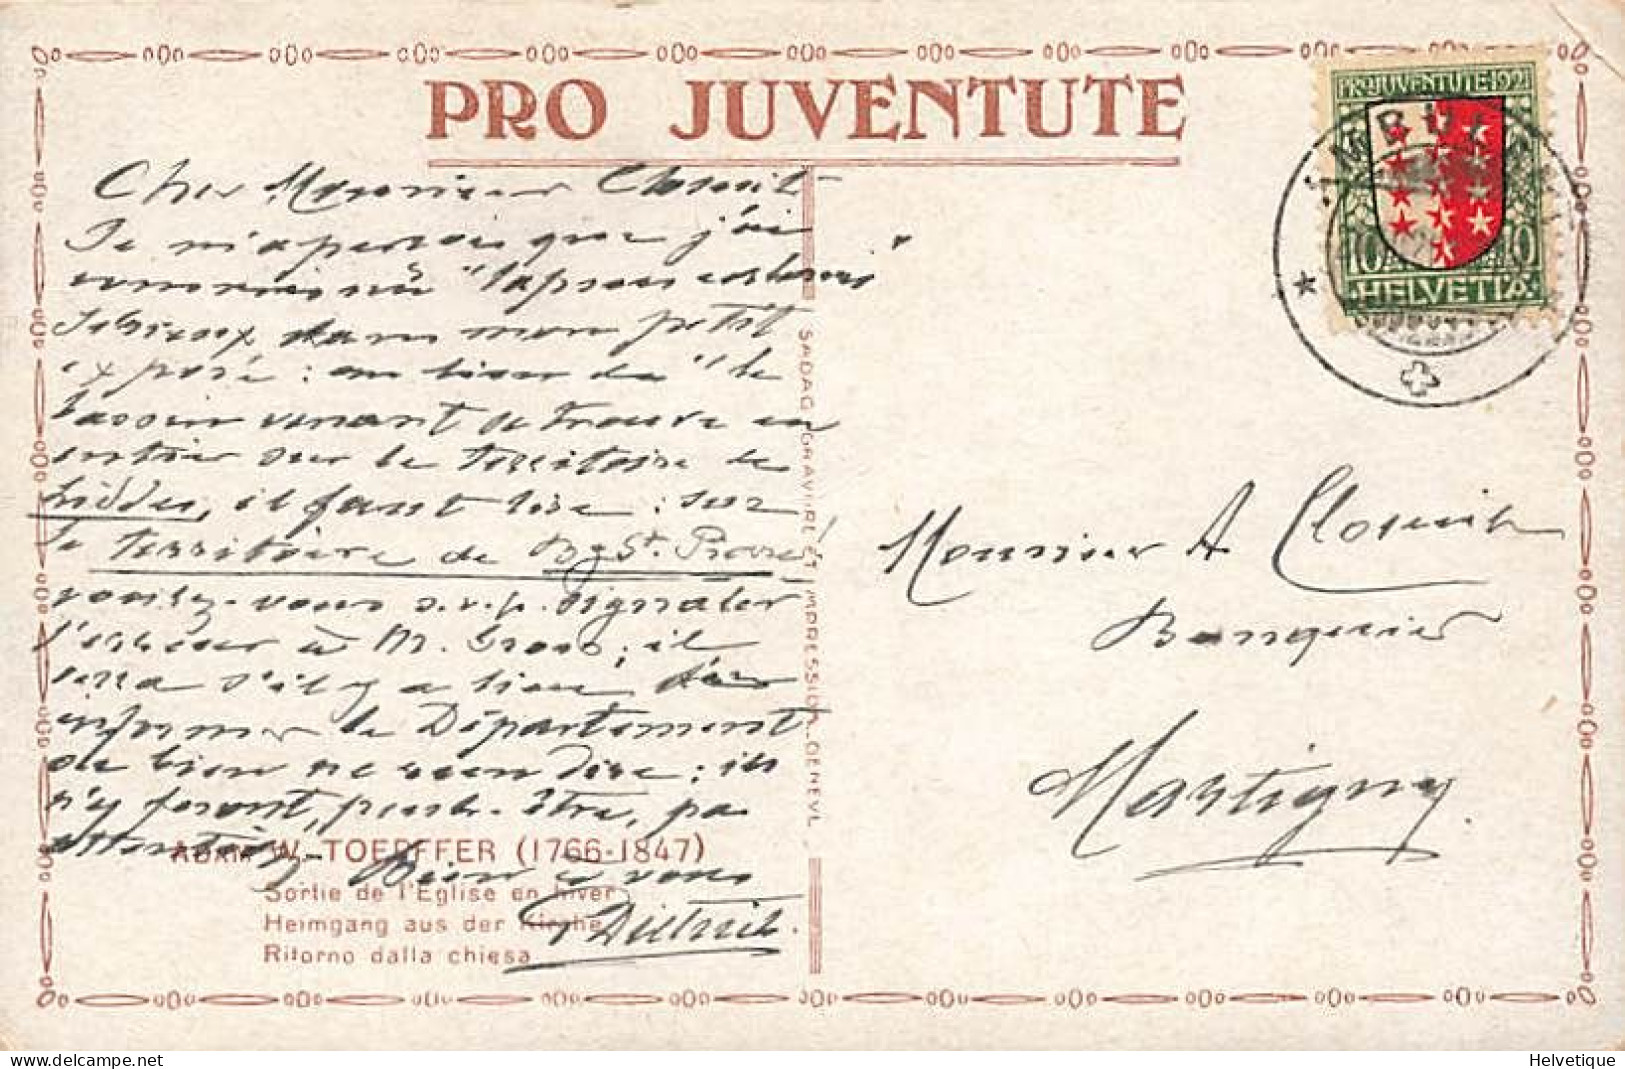 PRO JUVENTUTE
PRO JUVENTUTE 1921
10 10
HELVETIA
Cher Monsieur Closuit
Je m'aperçois que j'ai
commis un "lapsus calami"
sérieux dans mon petit
exposé: au lieu de "le
bassin venant se trouve en
entier sur le territoire de
Riddes, il faut lire: sur
le territoire de Bg St. Pierre!
veuillez-vous s.v.p. signaler
l'erreur à M. Gross; il
verra s'il y a lieu d'en
informer le Département
ou bien ne rien dire; ils
n'y feront, peut-être, pas
attention.
Bien à vous
Dietrich.
ADAM W. TOEPFFER (1766-1847)
Sortie de l'Eglise en hiver
Heimgang aus der Kirche
Ritorno dalla chiesa
SADAG GRAVURE ET IMPRESSION, GENÈVE
Monsieur A Closuit
Banquier
Martigny.
Helvetique